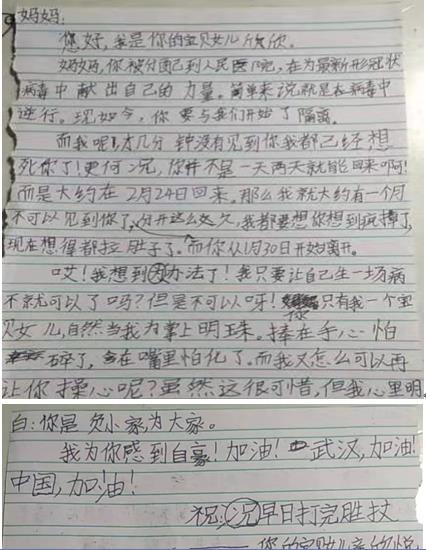 妈妈:
您好,我是你的宝贝女儿欣欣。
妈妈,你被分配到人民医院,在为最新形冠状
病毒中献出自己的力量。简单来说就是在病毒中
逆行。现如今,你要与我们开始了隔离。
而我呢!才几分钟没有见到你我都已经想
死你了!更何况,你并不是一天两天就能回来啊!
而是大约在2月24日回来。那么我就大约有一个月
不可以见到你了,分开这么久,我都要想你想到疯掉了,
现在想得都拉肚子了。而你从1月30日开始离开。
哎!我想到办法了!我只要让自己生一场病
不就可以了吗?但是不可以呀!你只有我一个宝
贝女儿,自然当我为掌上明珠。捧在手心怕
碎了,含在嘴里怕化了。而我又怎么可以再
让你操心呢?虽然这很可惜,但我心里明
白:你是舍小家为大家。
我为你感到自豪!加油!武汉,加油!
中国,加油!
祝:况早日打完胜技
你的宝贝儿亲的悦